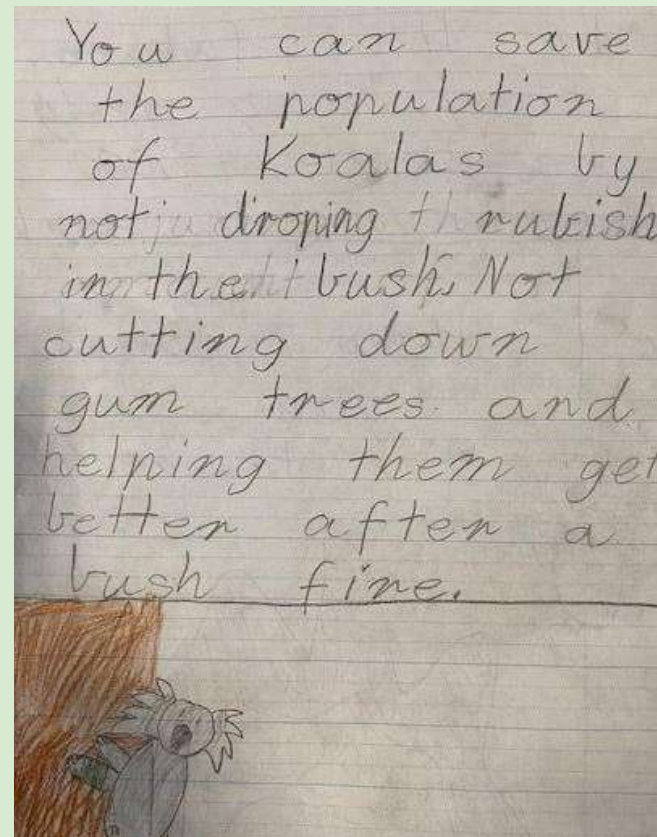 You can save
the population
of Koalas by
not droping rubish
in the bush, Not
cutting down
gum trees and
helping them get
better after a
bush fire.